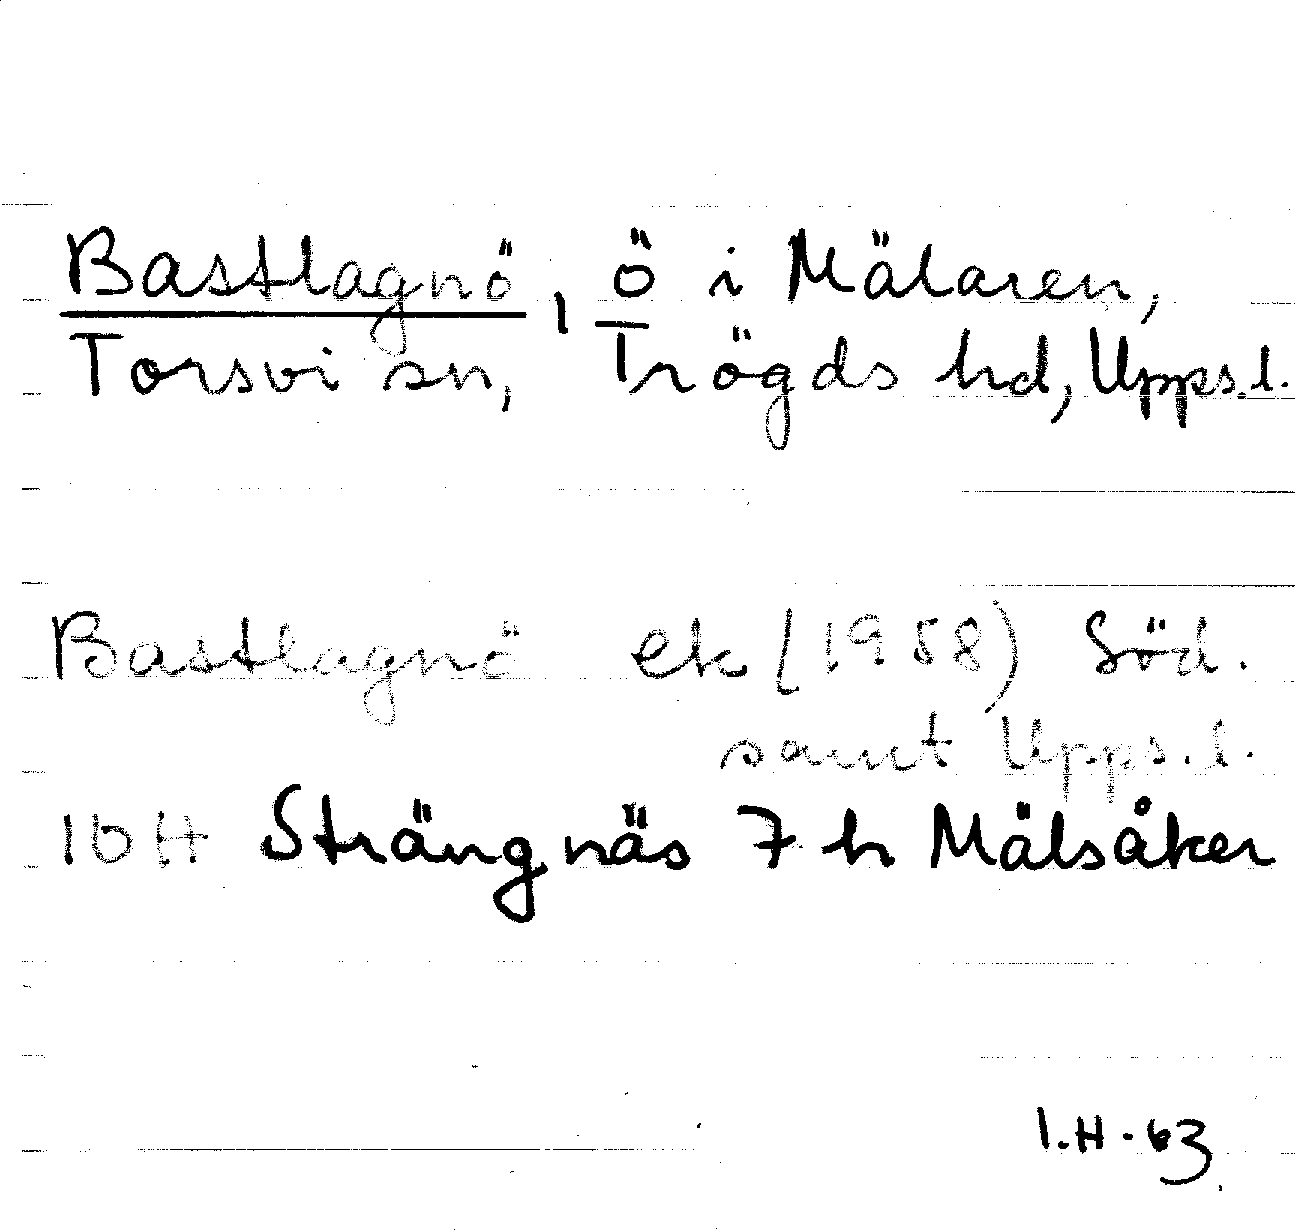 Bastlagnö, ö i Mälaren,
Torsvi sn, Trögds hd, Upps.l.
Bastlagnö ek (1958) Söd.
samt Upps.l.
10H Strängnäs 7h Mälsåker
I.H.63